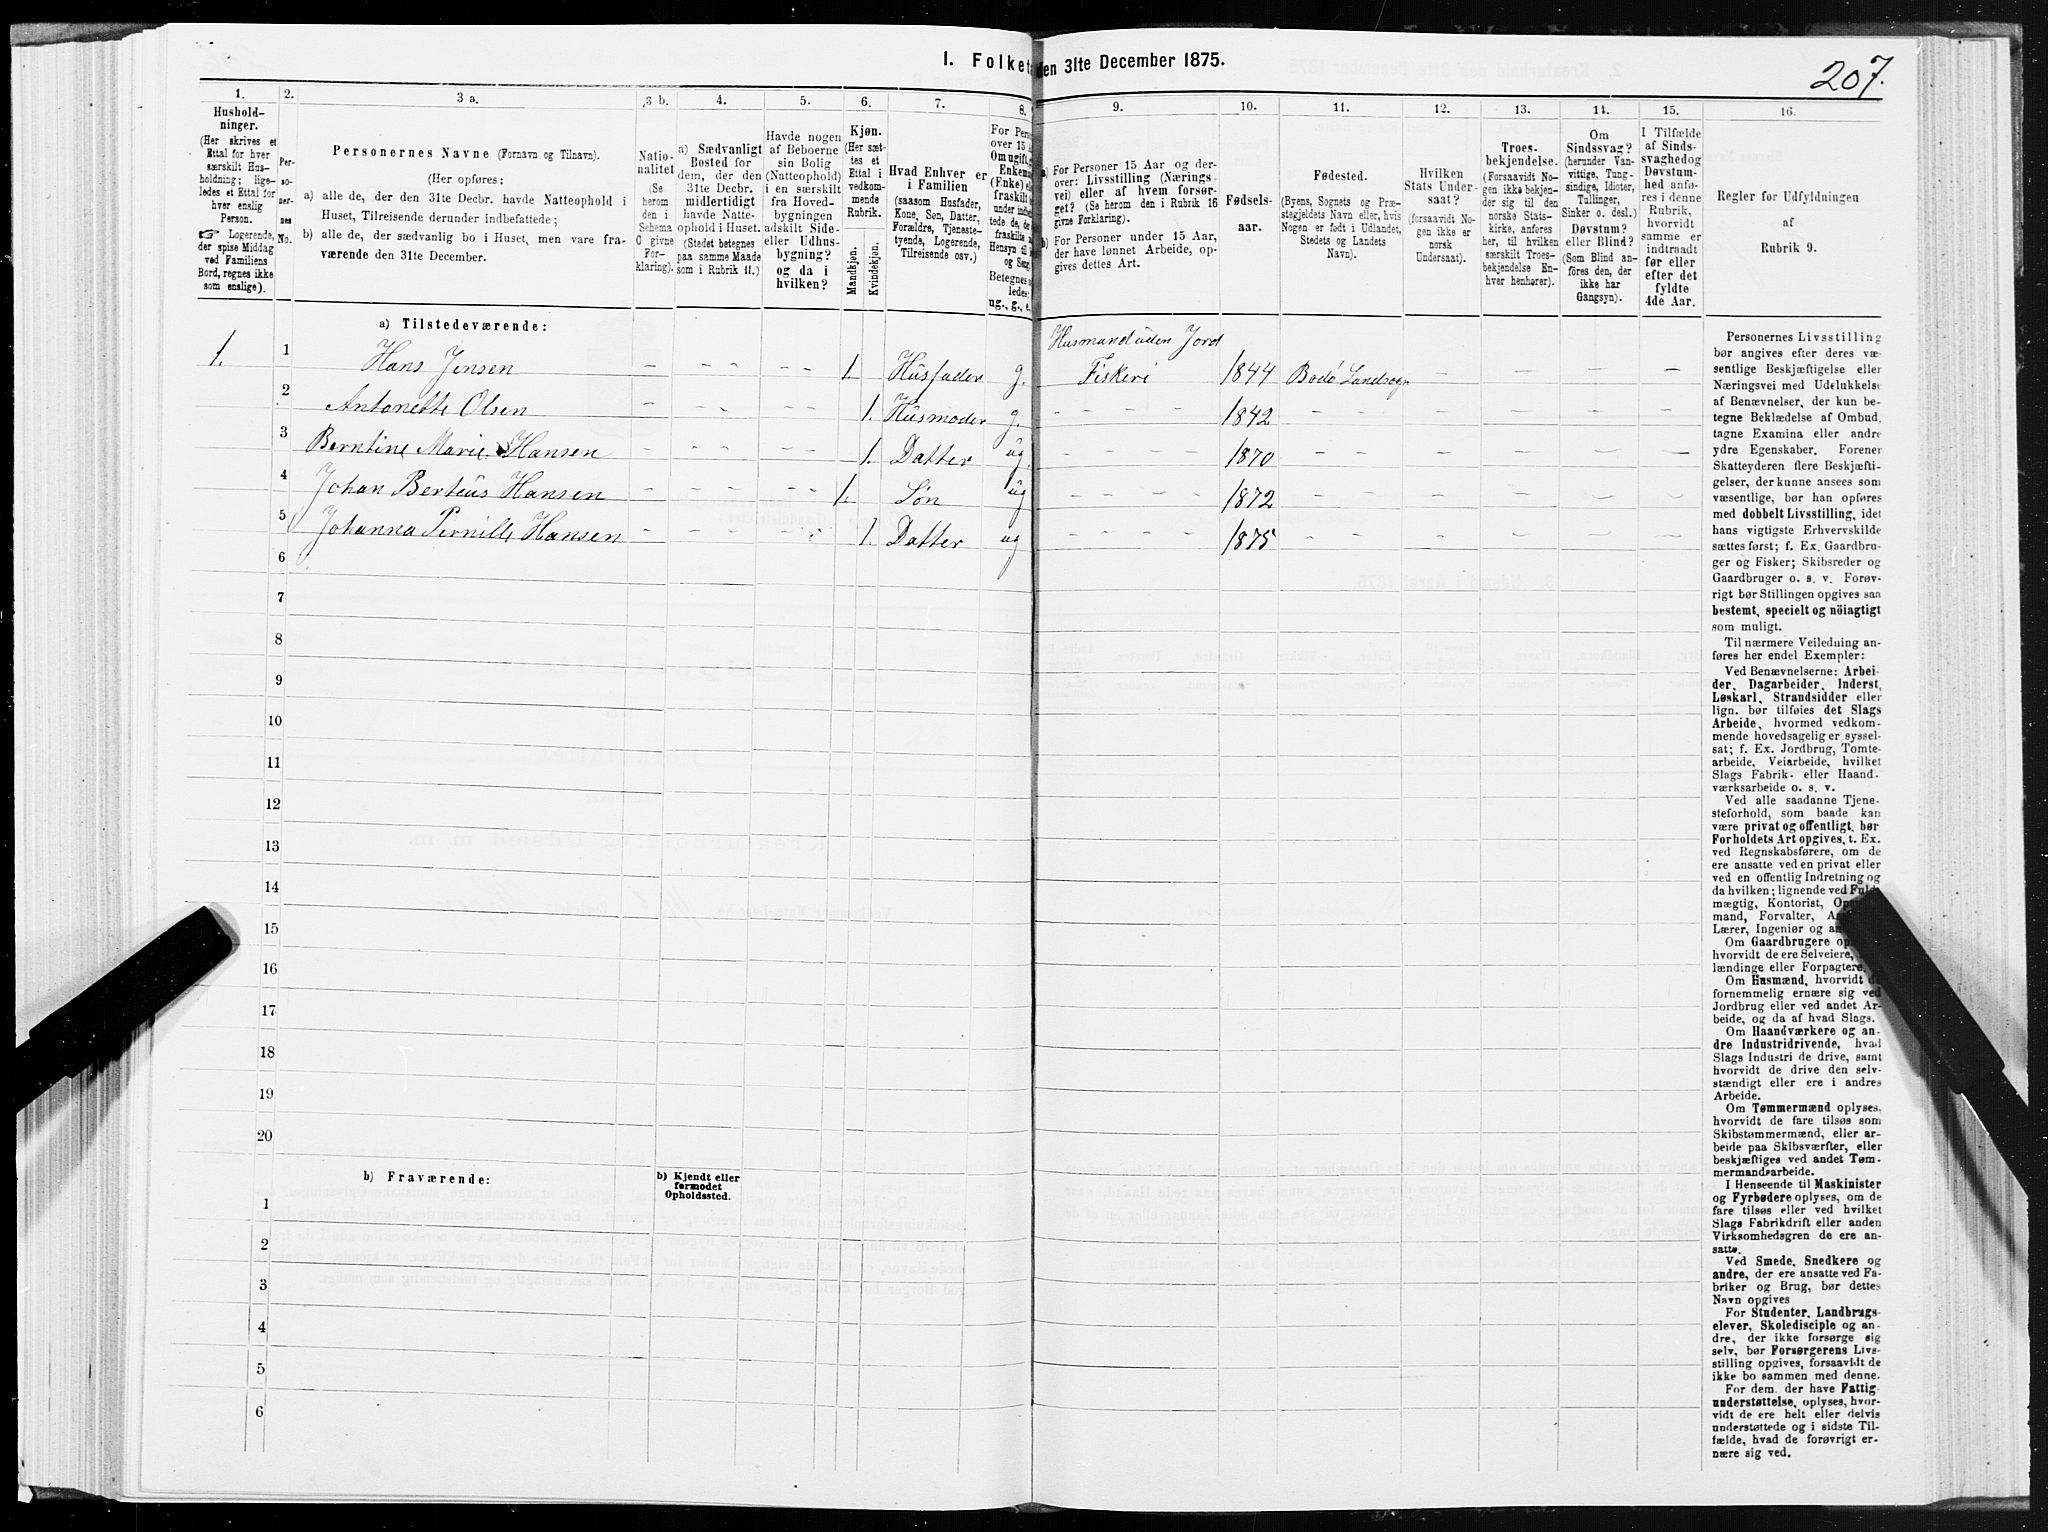 I. Folket den 31te December 1875.
207.
1.
Hushold-
ninger.
(Her skrives et
Ettal for hver
særskilt Hus-
holdning; lige-
ledes et Ettal for
hver enslig
Person.
☞ Logerende,
der spise Middag
ved Familiens
Bord, regnes ikke
som enslige).
2.
Per-
so-
ner-
nes
No.
3 a.
Personernes Navne (Fornavn og Tilnavn).
(Her opføres:
a) alle de, der den 31te Decbr. havde Natteophold i
Huset, Tilreisende derunder indbefattede;
b) alle de, der sædvanlig bo i Huset, men vare fra-
værende den 31te December.
3 b.
Natio-
nalitet
(Se
herom
den i
Schema
O givne
For-
klaring).
4.
a) Sædvanligt
Bosted for
dem, der den
31te Decbr.
midlertidigt
havde Natte-
ophold i Huset.
(Stedet betegnes
paa samme Maade
som i Rubrik 11.)
5.
Havde nogen
af Beboerne
sin Bolig
(Natteophold)
i en særskilt
fra Hoved-
bygningen
adskilt Side-
eller Udhus-
bygning?
og da i
hvilken?
6.
Kjøn.
(Her sæt-
tes et
Ettal i
vedkom-
mende
Rubrik.
Mandkjøn.
Kvindekjøn.
7.
Hvad Enhver er
i Familien
(saasom Husfader,
Kone, Søn, Datter,
Forældre, Tjeneste-
tyende, Logerende,
Tilreisende osv.)
8.
For Pers
over 15
Om ugift,
Enkema
(Enke) el
fraskilt
under indb
tede de, der
fraskilte
Hensyn til
og Seng.
Betegnes
ledes;
ug., g., e.
9.
a) For Personer 15 Aar og der-
over: Livsstilling (Nærings-
vei) eller af hvem forsør-
get? (Se herom den i Rubrik 16
givne Forklaring).
b) For Personer under 15 Aar,
der have lønnet Arbeide, op-
gives dettes Art.
10.
Fødsels-
aar.
11.
Fødested.
(Byens, Sognets og Præ-
stegjeldets Navn eller, hvis
Nogen er født i Udlandet,
Stedets og Landets
Navn).
12.
Hvilken
Stats Under-
saat?
(forsaavidt No-
gen ikke er
norsk
Undersaat).
13.
Troes-
bekjendelse.
(Forsaavidt No-
gen ikke bekjen-
der sig til den
norske Stats-
kirke, anføres
her, til hvilken
særskilt Troes-
bekjendelse En-
hver henhører).
14.
Om
Sindssvag?
(herunder Van-
vittige, Tung-
sindige, Idioter,
Tullinger,
Sinker o. desl.)
Døvstum?
eller Blind?
(Som Blind an-
føres den, der
ikke har
Gangsyn).
15.
I Tilfælde
af Sinds-
svaghedog
Døvstum-
hed anfø-
res i denne
Rubrik,
hvorvidt
samme er
indtraadt
før eller
efter det
fyldte
4de Aar.
16.
Regler for Udfyldningen
af
Rubrik 9.
a) Tilstedeværende:
1. 1 Hans Jensen - - - - - 1. Husfader g. Husmand uden Jord
Fiskeri 1844 Bodø Landsogn - - - -
2 Antonette Olsen - - - - - 1. Husmoder g. - - - - 1842 - - - - - - -
3 Berntine Marie Hansen - - - - - 1. Datter ug. - - - - 1870 - - - - - - -
4 Johan Berteus Hansen - - - - - 1. Søn ug - - - - 1872 - - - - - - -
5 Johanna Pernille Hansen - - - - - 1. Datter ug - - - - 1875 - - - - - - -
6
7
8
9
10
11
12
13
14
15
16
17
18
19
20
b) Fraværende:
b) Kjendt eller
formodet
Opholdssted.
1
2
3
4
5
6
Personernes Livsstilling
bør angives efter deres væ-
sentlige Beskjæftigelse eller
Næringsvei med Udelukkelse
af Benævnelser, der kun be-
tegne Beklædelse af Ombud,
tagne Examina eller andre
ydre Egenskaber. Forener
Skatteyderen flere Beskjæfti-
gelser, der kunne ansees som
væsentlige, bør han opføres
med dobbelt Livsstilling, idet
hans vigtigste Erhvervskilde
sættes først; f. Ex. Gaardbru-
ger og Fisker; Skibsreder og
Gaardbruger o. s. v. Forøv-
rigt bør Stillingen opgives saa
bestemt, specielt og nöiagtigt
som muligt.
Til nærmere Veiledning an-
føres her endel Exempler:
Ved Benævnelserne: Arbei-
der, Dagarbeider, Inderst,
Løskarl, Strandsidder eller
lign. bør tilføies det Slags
Arbeide, hvormed vedkom-
mende hovedsagelig er syssel-
sat; f. Ex. Jordbrug, Tomte-
arbeide, Veiarbeide, hvilket
Slags Fabrik- eller Haand-
værksarbeide o. s. v.
Ved alle saadanne Tjene-
steforhold, som baade kan
være privat og offentligt, bør
Forholdets Art opgives, t. Ex.
ved Regnskabsførere, om de
ere ansatte ved en privat eller
ved en offentlig Indretning og
da hvilken; lignende ved Fuld-
mægtig, Kontorist, Op
mand, Forvalter, As
Lærer, Ingeniør og an
Om Gaardbrugere op
hvorvidt de ere Selveiere,
lændinge eller Forpagtere.
Om Husmænd, hvorvidt d
fornemmelig ernære sig ved
Jordbrug eller ved andet Ar-
beide, og da af hvad Slags.
Om Haandværkere og an-
dre Industridrivende, hvad
Slags Industri de drive, samt
hvorvidt de drive den selv-
stændigt eller ere i andres
Arbeide.
Om Tømmermænd oplyses,
hvorvidt de fare tilsøs som
Skibstømmermænd, eller ar-
beide paa Skibsværfter, eller
beskjæftiges ved andet Tøm-
mermandsarbeide.
I Henseende til Maskinister
og Fyrbødere oplyses, om de
fare tilsøs eller ved hvilket
Slags Fabrikdrift eller anden
Virksomhedsgren de ere an-
satte.
Ved Smede, Snedkere og
andre, der ere ansatte ved Fa-
briker og Brug, bør dettes
Navn opgives
For Studenter, Landbrugs-
elever, Skoledisciple og an-
dre, der ikke forsørge sig
selv, bør Forsørgerens Livs-
stilling opgives, forsaavidt de
ikke bo sammen med denne.
For dem, der have Fattig-
understøttelse, oplyses, hvor-
vidt de ere helt eller delvis
understøttede og i sidste Til-
fælde, hvad de forøvrigt er-
nære sig ved.